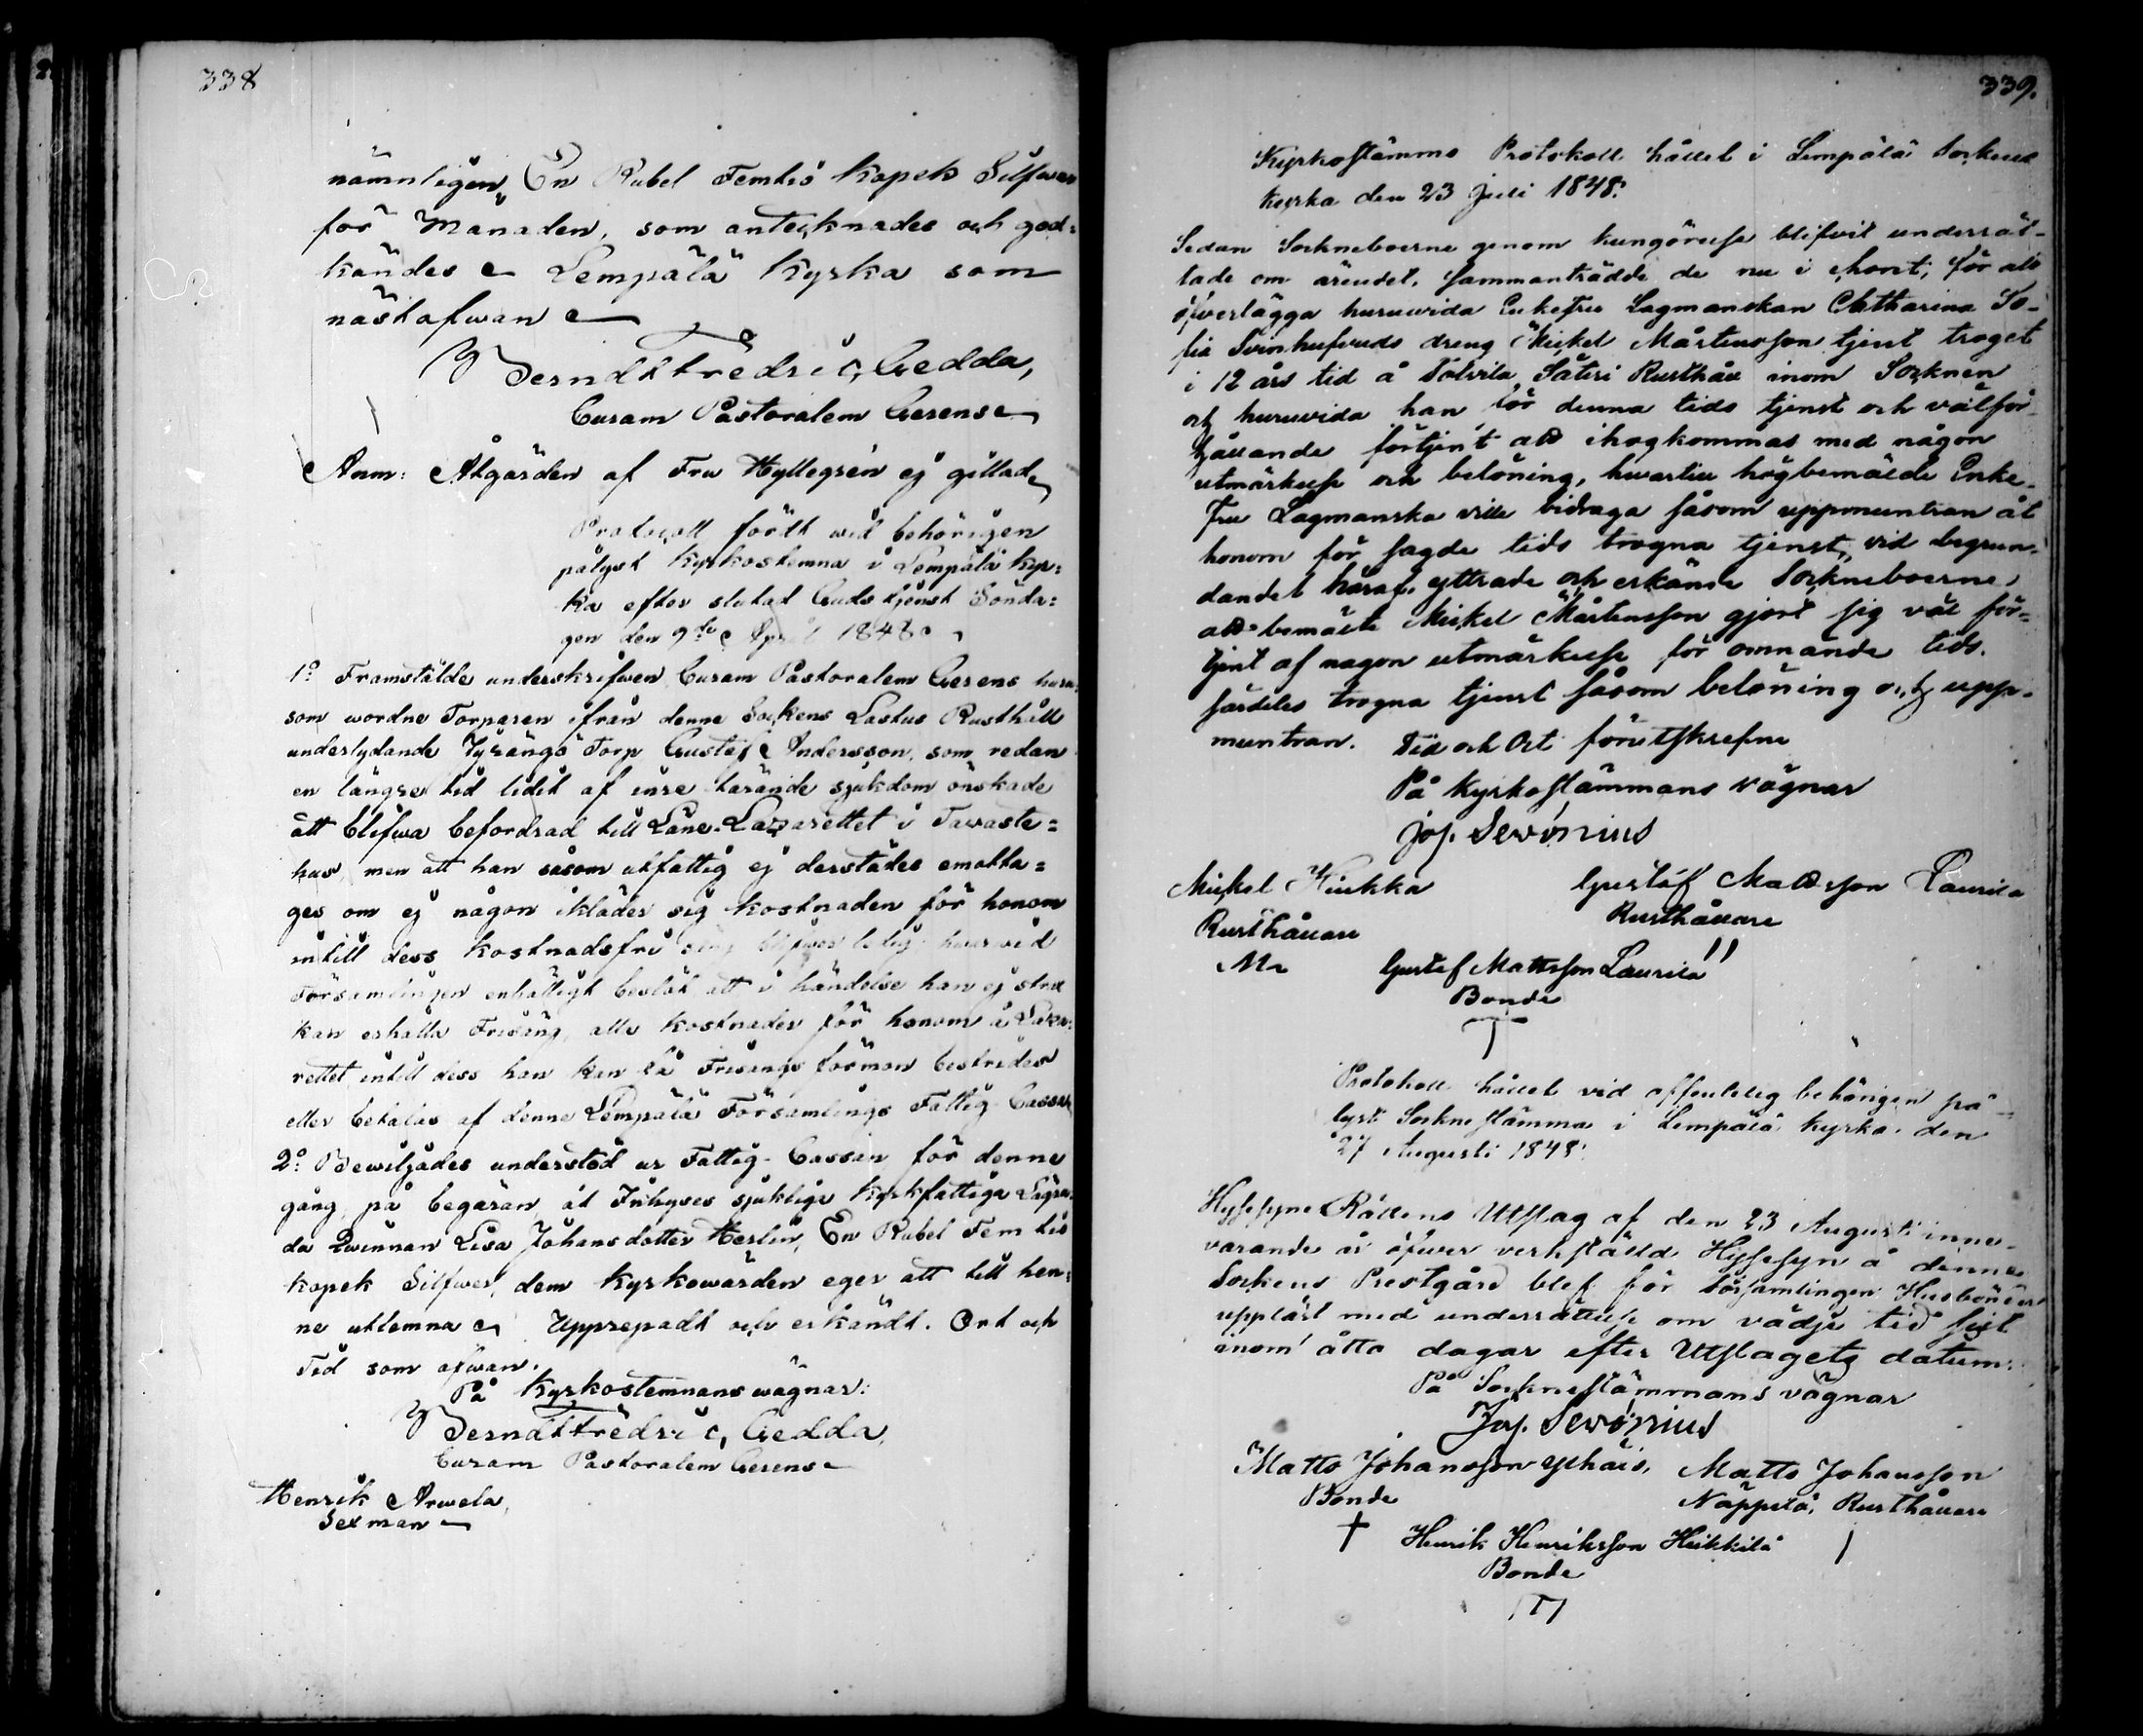 338
nämnligen, En Rubel Femtio kopek Silfwer
för Månaden, som antecknades och god=
kändes Lempälä Kyrka som
nästofwan
Berndt Fredric Gedda,
Curam Pastoralem Gerens
Anm: Åtgärden af Fru Hyllegrén ej gillad
Protocoll fördt wid behörigen
pålyst Kyrkostemna i Lempälä Kyr=
ka efter slutad Gudstjenst Sönda=
gen den 9de April 1848
1o Framstälde underskrifwen Curam Pastoralem Gerens huru=
som wordne Torparen ifrån denne Sockens Lastus Rusthåll
underlydande Torp Gustaf Andersson, som redan
en längre tid lidit af inre tärande sjukdom önskade
att blifwa befordrad till Läne-Lazarettet i Tawaste=
hus, men att han såsom utfattig ej derstädes emotta=
ges om ej någon ikläder sig kostnaden för honom
intill dess kostnadsfri säng blifwer ledig, hwarwid
Församlingen enhälligt beslöt att i händelse han ej strax
kan erhålla Frisäng, alla kostnader för honom å Laza=
rettet intill dess han kan få Frisängs förmon bestrides
eller betalas af denne Lempälä Församlings Fattig Cassa
2o Bewiljades understöd ur Fattig-Cassan för denne
gång, på begäran, åt Inhyses sjuklige Kyrkfattiga
da Qwinnan Lisa Johansdotter Herlin, En Rubel Femtio
kopek Silfwer, dem Kyrkowärden eger att till hen=
ne utlemna Upprepadt och erkändt. Ort och
Tid som ofwan.
På Kyrkostemnans wägnar:
Berndt Fredric Gedda,
Curam Pastoralem Gerens
Henrik Arwela,
Sexman
339.
Kyrkostämmo Protokoll hållet i Lempälä Sockens
kyrka den 23 Juli 1848.
Sedan Sockneboerne genom kungörelse blifvit underrät-
tade om ärendet, sammanträdde de nu i ehont, för att
öfverlägga huruvida Enkefru Lagmanskan Catharina So-
fia Svinhufvuds dreng Mickel Mårtensson tjent troget
i 12 års tid å Tolvila Säteri Rusthåll inom Socknen
och huruvida han för denna tids tjenst och välför-
hållande förtjent att ihogkommas med någon
utmärkelse och belöning, hwartill högbemälde Enke-
fru Lagmanska ville bidraga såsom uppmuntran åt
honom för sagde tids trogna tjenst, vid begrun-
dandet häraf, yttrade och erkände Sockneboerne
att bemälte Mickel Mårtensson gjort sig väl för-
tjent af någon utmärkelse för omnämnde tids
särdeles trogna tjenst såsom belöning och upp-
muntran. Tid och Ort förutskrefne
På Kyrkostämmans vägnar
Jos. Serónius
Mickel Hiukka Gustaf Mattsson Laurila
Rusthållare Rusthållare
Gustaf Mattsson Laurila
Bonde
Protokoll hållet vid offentelig behörigen på-
lyst Sockne stämma i Lempälä kyrka den
27 Augusti 1848.
Hussyns Rättens Utslag af den 23 Augusti inne-
varande år öfver verkställd Hussyn å denne
Sockens Prestgård blef för Församlingen Husbönder
uppläst med underrättelse om vädje tid sist
inom åtta dagar efter Utslagets datum.
På Socknestämmans vägnar
Jos. Serónius
Matts Johansson Matts Johansson
Bonde Näppilä, Rusthållare
Henrik Henriksson Heikkilä
Bonde